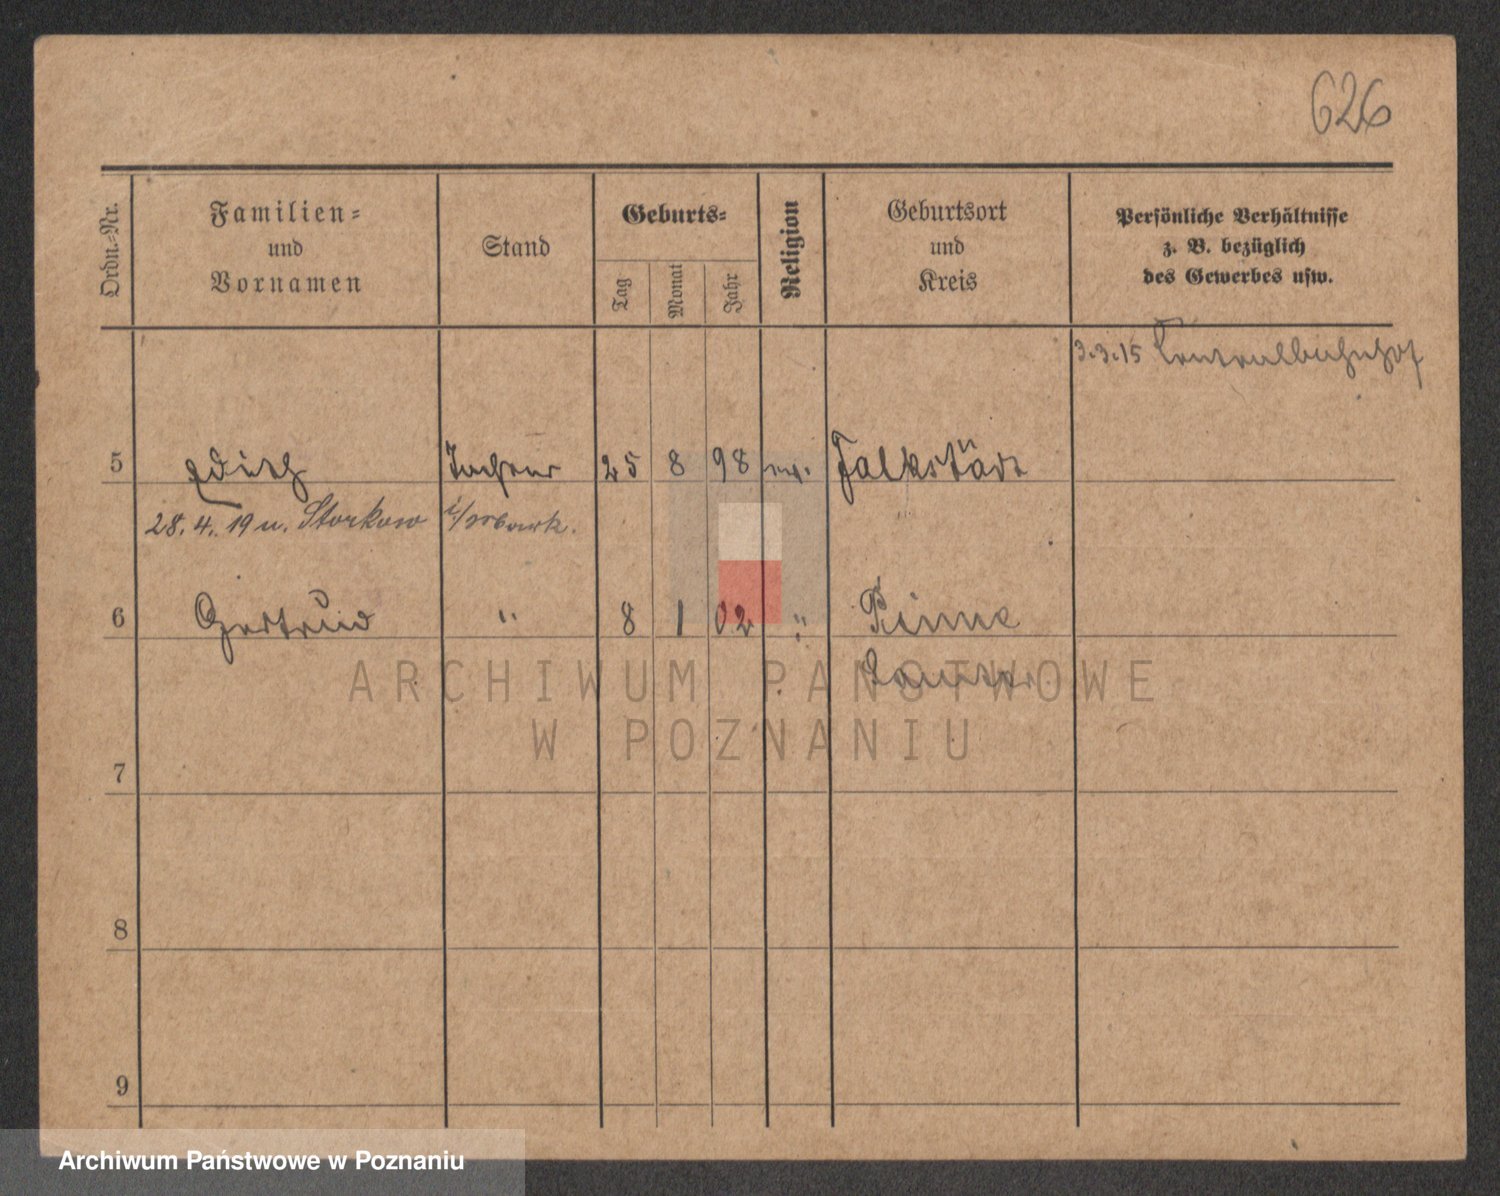 626
Ordn.-Nr.
Familien-
und
Vornamen
Stand
Geburts-
Tag
Monat
Jahr
Religion
Geburtsort
und
Kreis
Persönliche Verhältnisse
z. B. bezüglich
des Gewerbes usw.
3.3.15 Centralbahnhof
5 Edith Tochter 25 8 98 ev. Falkstädt
28. 4. 19 n. Storkow i/
6 Gertrud " 8 1 02 " Pinne
Samter
ARCHIWUM PAŃSTWOWE
W POZNANIU
7
8
9
Archiwum Państwowe w Poznaniu